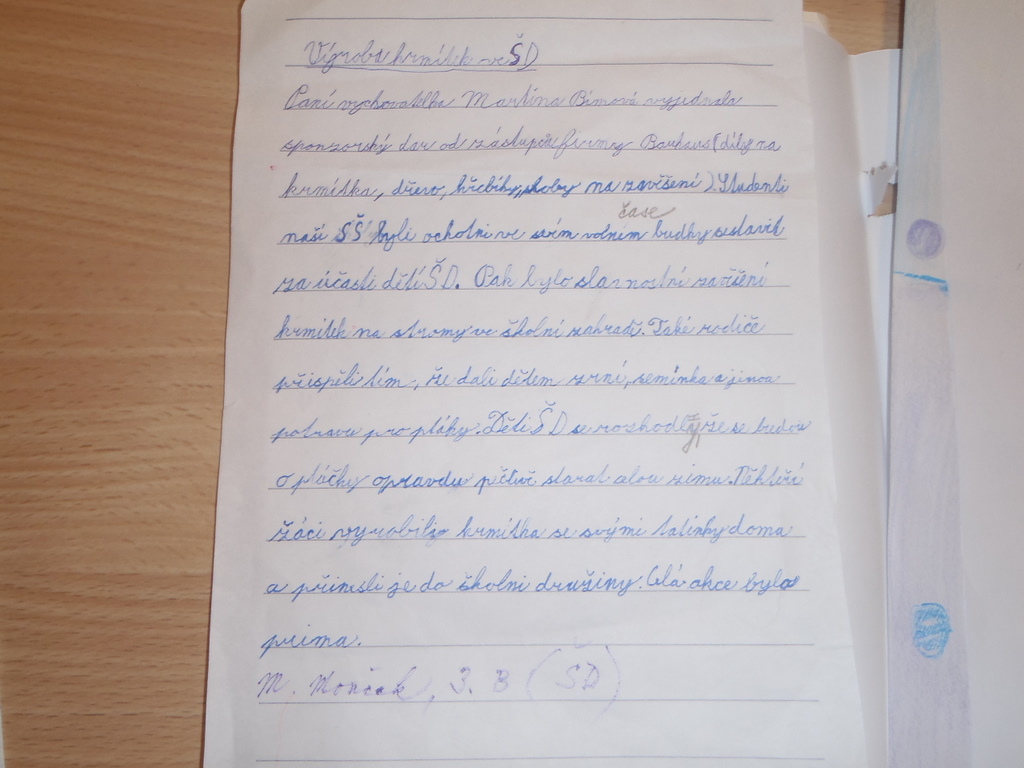 Výroba krmítek ve ŠD
Paní vychovatelka Martina Bímová vyjednala
sponzorský dar od zástupce firmy Bauhaus (díly na
krmítka, dřevo, hřebíky, skoby na zavěšení). Studenti
čase
naší SŠ byli ochotni ve svém volném budky sestavit
za účasti dětí ŠD. Pak bylo slavnostní zavěšení
krmítek na stromy ve školní zahradě. Také rodiče
přispěli tím, že dali dětem zrní, semínka a jinou
potravu pro ptáky. Děti ŠD se rozhodly, že se budou
o ptáčky opravdu pečlivě starat celou zimu. Někteří
žáci vyrobili krmítka se svými tatínky doma
a přinesli je do školní družiny. Celá akce byla
prima.
M. Mončak, 3. B (ŠD)